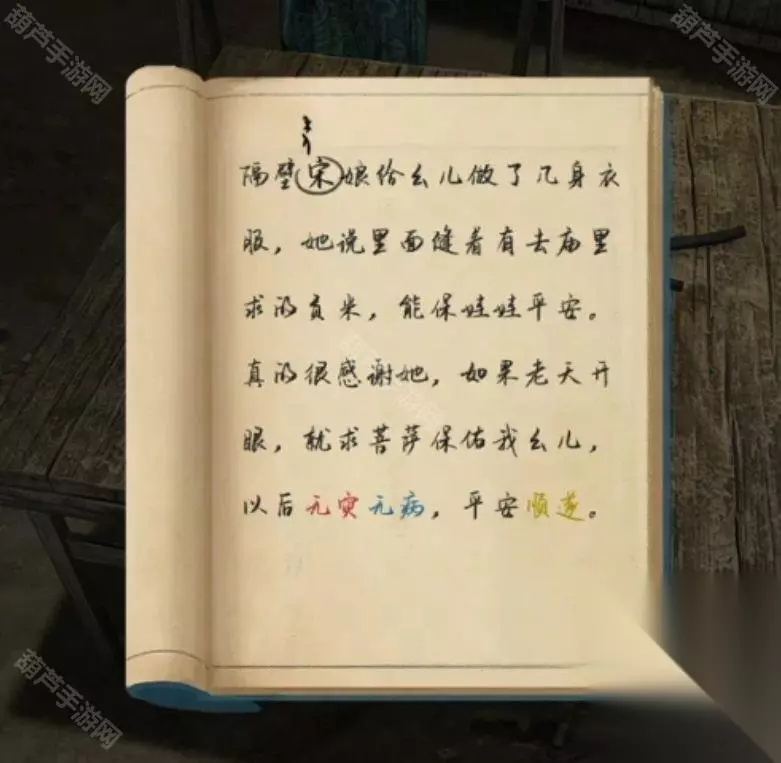 葫芦手游网
葫芦手游网
隔壁宋娘给幺儿做了几身衣
服，她说里面缝着有去庙里
求的贡米，能保娃娃平安。
真的很感谢她，如果老天开
眼，就求菩萨保佑我幺儿，
以后无灾无病，平安顺遂。
葫芦手游网
葫芦手游网